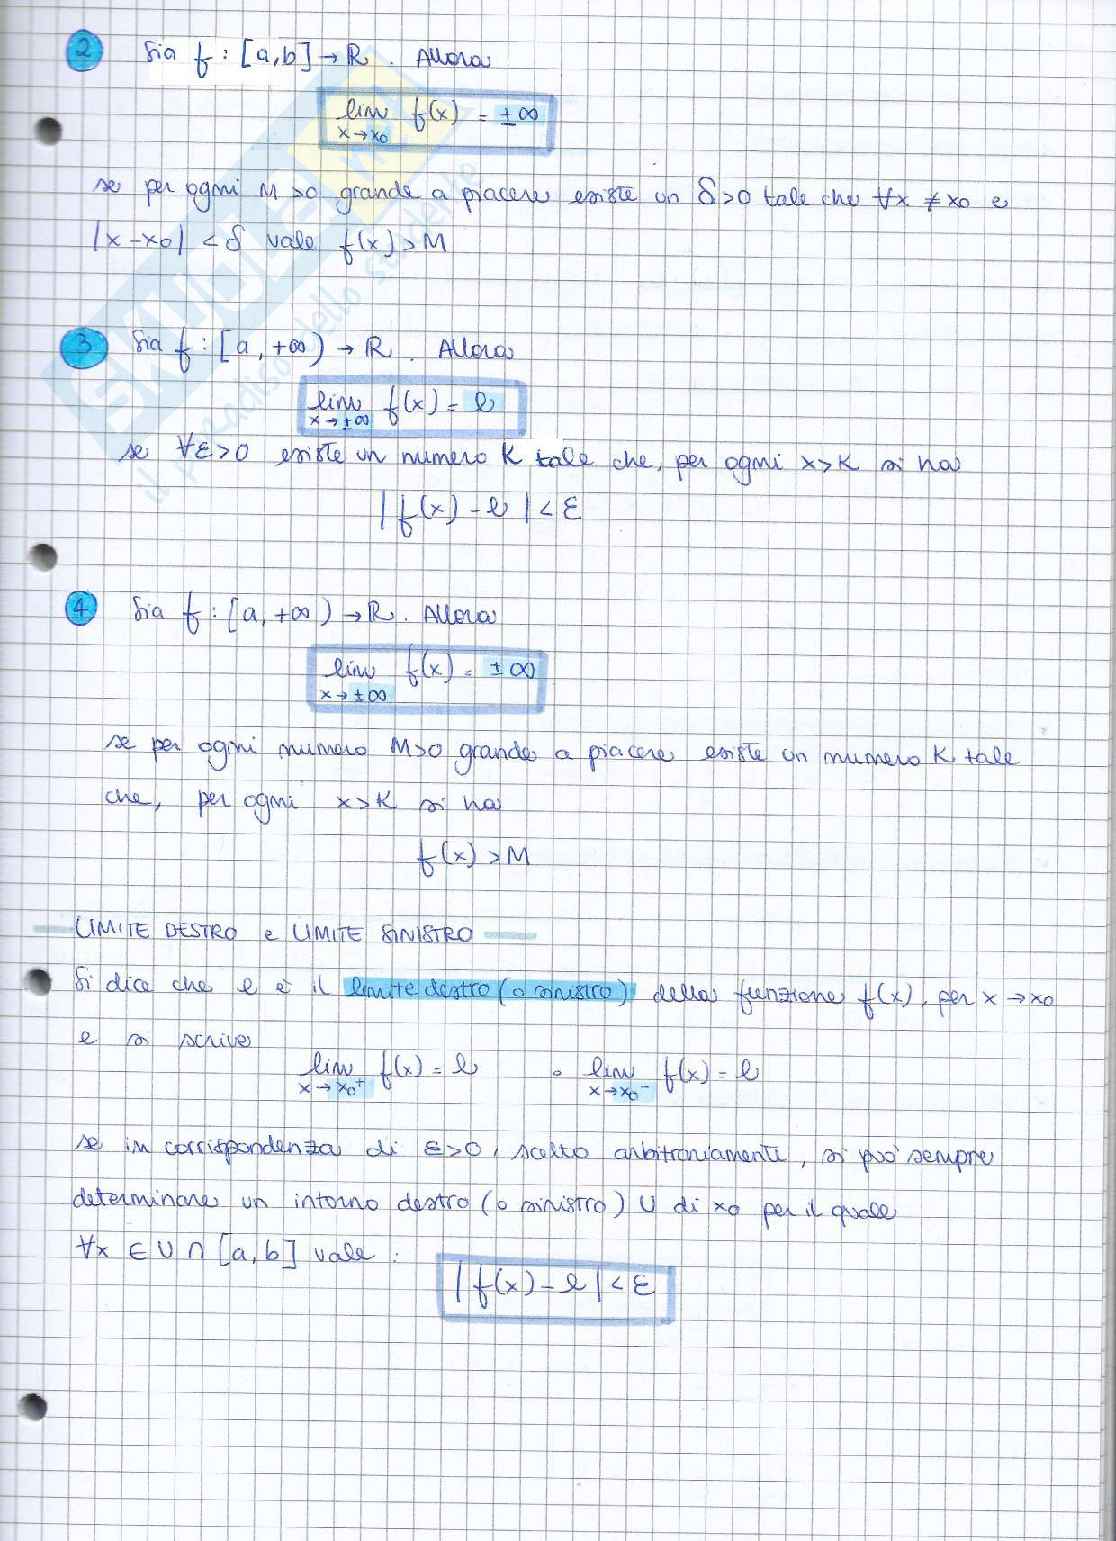 2 Sia f : [a,b] → R . Allora
lim f(x) = ±∞
x→x0
se per ogni M >0 grande a piacere esiste un δ>0 tale che ∀x ≠ x0 e
|x-x0| < δ vale f(x) > M
3 Sia f : [a, +∞) → R . Allora
lim f(x) = l
x→±∞
se ∀ε>0 esiste un numero K tale che, per ogni x>K si ha
| f(x) - l | < ε
4 Sia f : [a, +∞) → R . Allora
lim f(x) = ±∞
x→±∞
se per ogni numero M>0 grande a piacere esiste un numero K tale
che, per ogni x>K si ha
f(x) > M
LIMITE DESTRO e LIMITE SINISTRO
Si dice che l è il limite destro (o sinistro) della funzione f(x), per x → x0
e si scrive
lim f(x) = l o lim f(x) = l
x→x0+ x→x0-
se in corrispondenza di ε>0, scelto arbitrariamente, si può sempre
determinare un intorno destro (o sinistro) U di x0 per il quale
∀x ∈ U ∩ [a,b] vale :
| f(x) - l | < ε
SKUOLA.net
il paradiso dello studente